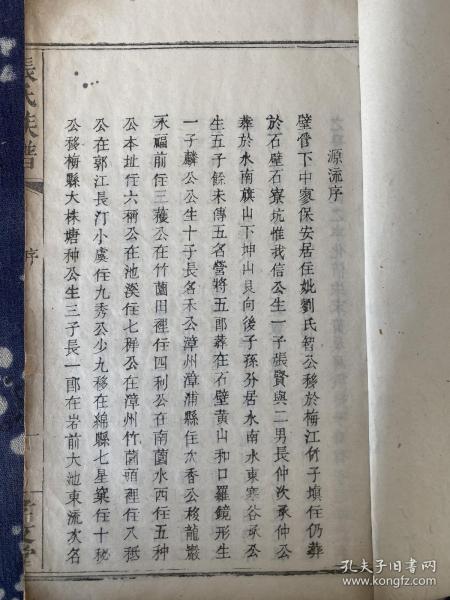 源流序
壁營下中寥保安居住妣劉氏智公移於梅江竹子垻住仍葬
於石壁石寮坑惟我信公生一子張賢與二男長仲次承仲公
葬於水南旗山下坤山艮向後子孫分居水南水東寒谷承公
生五子餘未傳五名營將五郎葬在石壁黃山和口羅鏡形生
一子麟公公生十子長名禾公漳州漳浦縣住次香公移龍巖
永福前住三穫公在竹蘭田裡住四利公在南菌水西住五種
公本址住六稱公在池溪住七稈公在漳州竹菌頭裡住八秪
公在郭江長汀小虞住九秀公少九移在綿縣七星寨住十秘
公移梅縣大株塘种公生三子長一郎在岩前大池東流次名
張氏族譜
序
孔夫子旧书网